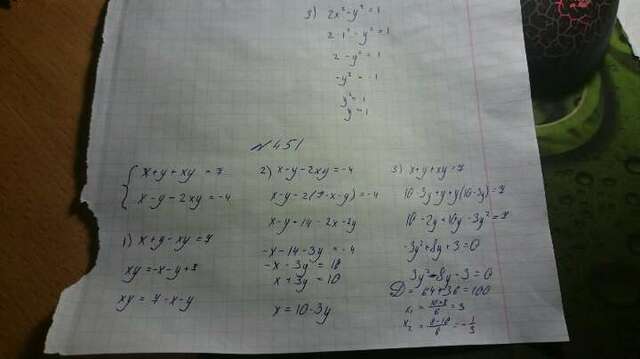 3) 2x²-y²=1
2·1²-y²=1
2-y²=1
-y²=-1
y²=1
y=1
№451
{x+y+xy=7
x-y-2xy=-4
1) x+y-xy=7
xy=-x-y+7
xy=7-x-y
2) x-y-2xy=-4
x-y-2(7-x-y)=-4
x-y-14-2x-2y
-x-14-3y=-4
-x-3y=18
x+3y=10
x=10-3y
3) x+y+xy=7
10-3y+y+y(10-3y)=7
10-2y+10y-3y²=7
-3y²+8y+3=0
3y²-8y-3=0
D=64+36=100
x₁=(10+8)/6=3
x₂=(8-10)/6=-1/3